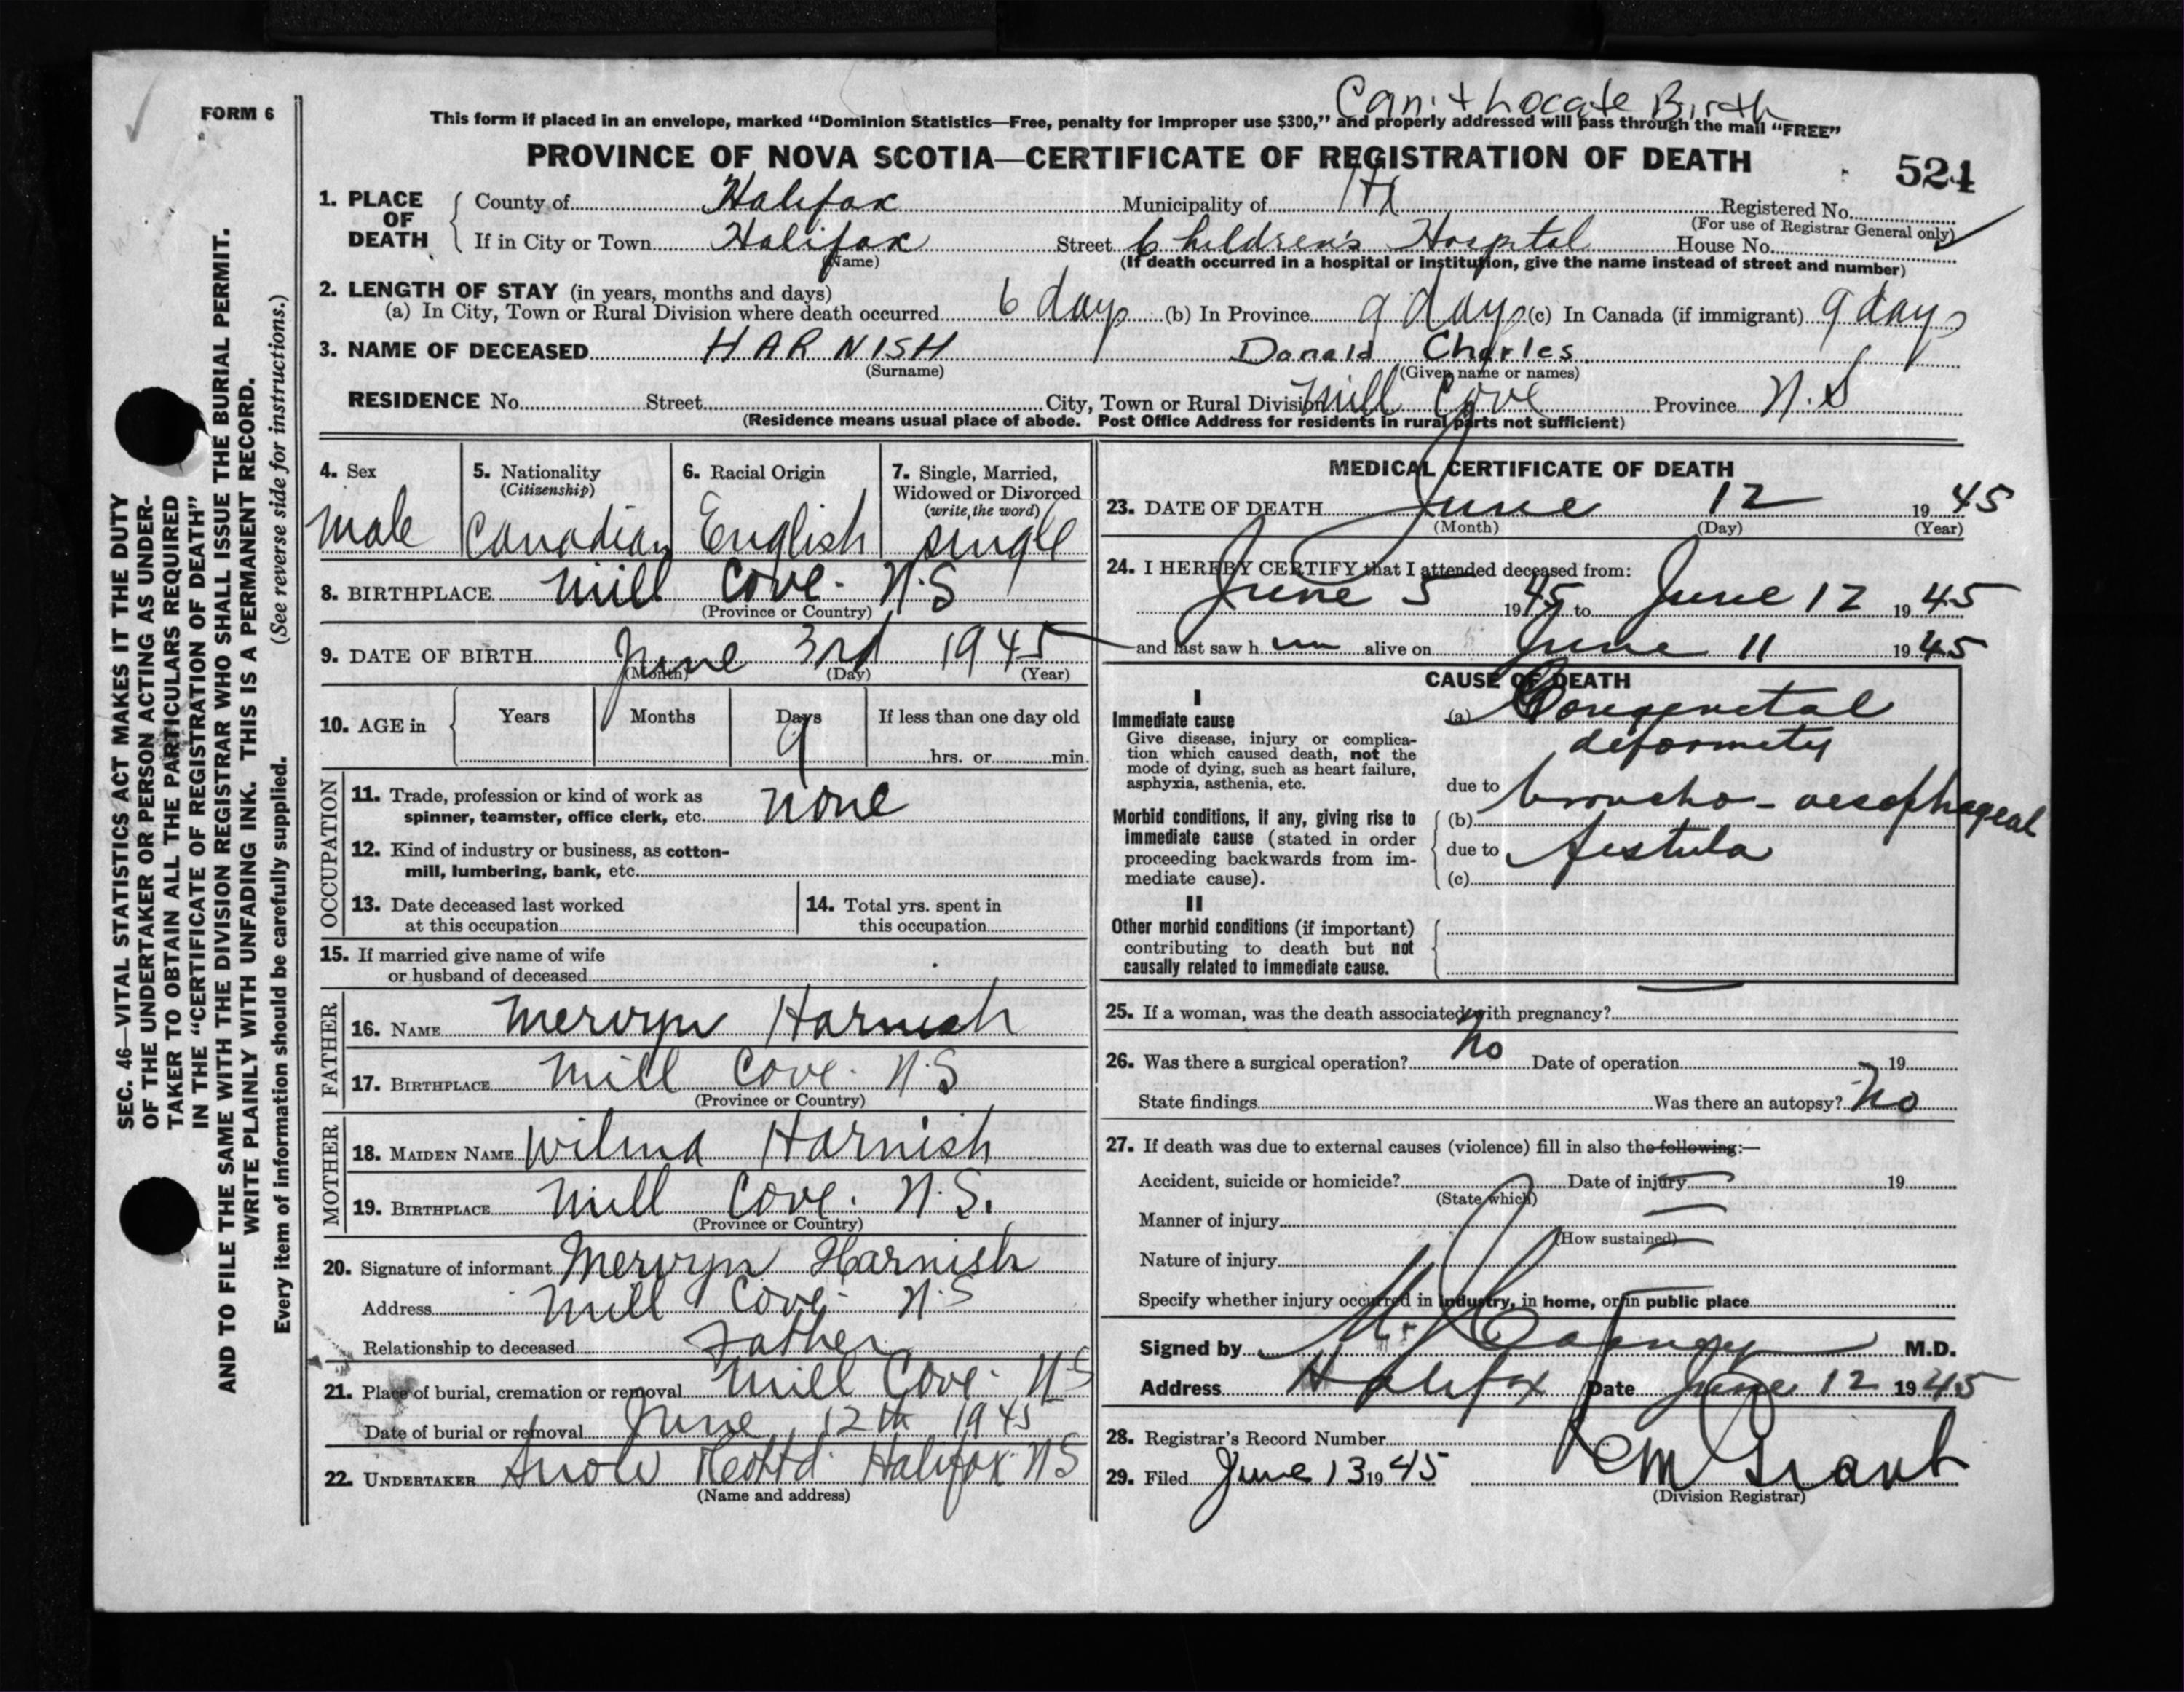 Can't Locate Birth
FORM 6
This form if placed in an envelope, marked "Dominion Statistics—Free, penalty for improper use $300," and properly addressed will pass through the mail "FREE"
PROVINCE OF NOVA SCOTIA—CERTIFICATE OF REGISTRATION OF DEATH
524
1. PLACE OF DEATH
County of Halifax Municipality of Hx Registered No.
(For use of Registrar General only)
If in City or Town Halifax Street Children's Hospital House No.
(Name) (If death occurred in a hospital or institution, give the name instead of street and number)
2. LENGTH OF STAY (in years, months and days)
(a) In City, Town or Rural Division where death occurred 6 days (b) In Province 9 days (c) In Canada (if immigrant) 9 days
3. NAME OF DECEASED HARNISH Donald Charles.
(Surname) (Given name or names)
RESIDENCE No. Street City, Town or Rural Division Mill Cove Province N.S
(Residence means usual place of abode. Post Office Address for residents in rural parts not sufficient)
4. Sex
male
5. Nationality
(Citizenship)
Canadian
6. Racial Origin
English
7. Single, Married,
Widowed or Divorced
(write the word)
single
8. BIRTHPLACE Mill Cove. N.S
(Province or Country)
9. DATE OF BIRTH June 3rd 1945
(Month) (Day) (Year)
10. AGE in Years Months Days If less than one day old
9 hrs. or min.
OCCUPATION
11. Trade, profession or kind of work as
spinner, teamster, office clerk, etc. none
12. Kind of industry or business, as cotton-
mill, lumbering, bank, etc.
13. Date deceased last worked
at this occupation
14. Total yrs. spent in
this occupation
15. If married give name of wife
or husband of deceased
FATHER
16. NAME Mervyn Harnish
17. BIRTHPLACE Mill Cove. N.S
(Province or Country)
MOTHER
18. MAIDEN NAME Wilma Harnish
19. BIRTHPLACE Mill Cove. N.S.
(Province or Country)
20. Signature of informant Mervyn Harnish
Address Mill Cove. N.S
Relationship to deceased Father
21. Place of burial, cremation or removal Mill Cove. N.S
Date of burial or removal June 12th 1945
22. UNDERTAKER Snow Ltd. Halifax N.S
(Name and address)
MEDICAL CERTIFICATE OF DEATH
23. DATE OF DEATH June 12 1945
(Month) (Day) (Year)
24. I HEREBY CERTIFY that I attended deceased from:
June 5 1945 to June 12 1945
and last saw h im alive on June 11 1945
CAUSE OF DEATH
I
Immediate cause
Give disease, injury or complica-
tion which caused death, not the
mode of dying, such as heart failure,
asphyxia, asthenia, etc.
(a) Congenital
deformity
due to broncho-oesophageal
Morbid conditions, if any, giving rise to
immediate cause (stated in order
proceeding backwards from im-
mediate cause).
(b)
due to fistula
(c)
II
Other morbid conditions (if important)
contributing to death but not
causally related to immediate cause.
25. If a woman, was the death associated with pregnancy?
26. Was there a surgical operation? No Date of operation 19
State findings Was there an autopsy? No
27. If death was due to external causes (violence) fill in also the following:—
Accident, suicide or homicide? Date of injury 19
(State which)
Manner of injury
(How sustained)
Nature of injury
Specify whether injury occurred in industry, in home, or in public place
Signed by M.D.
Address Halifax Date June 12 1945
28. Registrar's Record Number
29. Filed June 13 1945 Grant
(Division Registrar)
SEC. 46—VITAL STATISTICS ACT MAKES IT THE DUTY
OF THE UNDERTAKER OR PERSON ACTING AS UNDER-
TAKER TO OBTAIN ALL THE PARTICULARS REQUIRED
IN THE "CERTIFICATE OF REGISTRATION OF DEATH"
AND TO FILE THE SAME WITH THE DIVISION REGISTRAR WHO SHALL ISSUE THE BURIAL PERMIT.
WRITE PLAINLY WITH UNFADING INK. THIS IS A PERMANENT RECORD.
Every item of information should be carefully supplied. (See reverse side for instructions.)